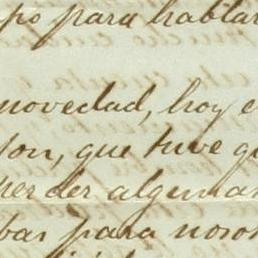 po para hablar
novedad, hoy e
son, que tuve q
perder algunas
bas para noso